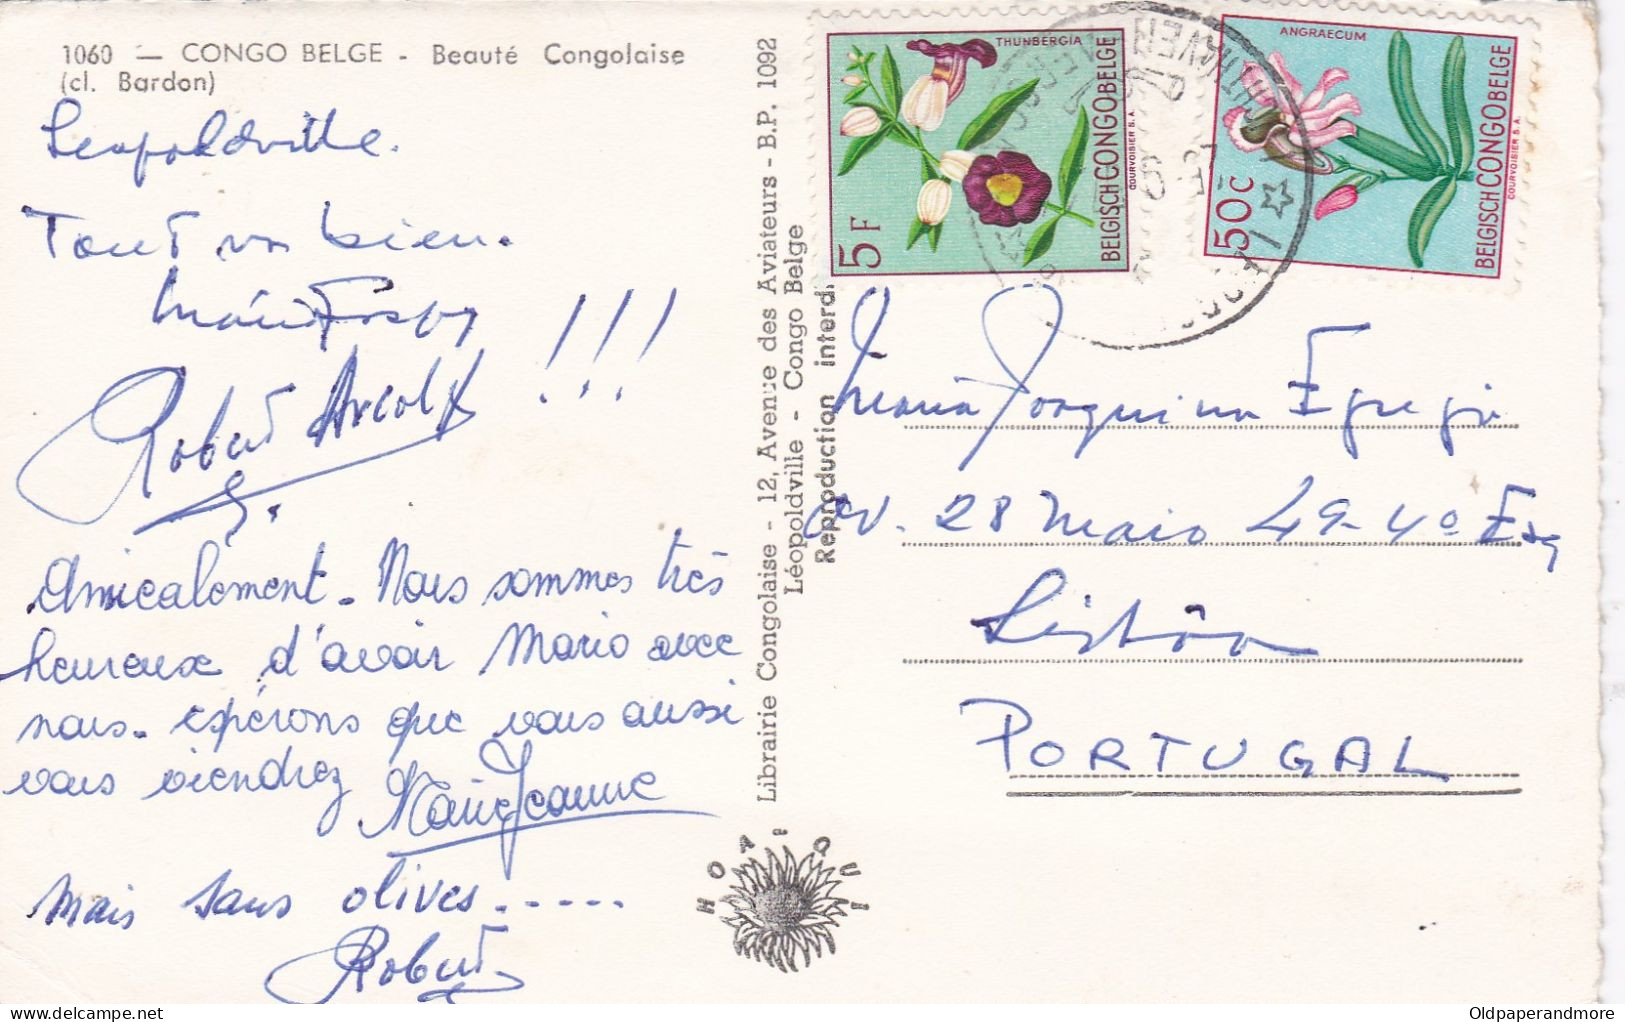 1060 — CONGO BELGE - Beauté Congolaise
(cl. Bardon)
Leopoldville.
Tout va bien.
!!!
Robert
Amicalement. Nous sommes très
heureux d'avoir Mario avec
nous. espérons que vous aussi
vous viendrez
Marie Jeanne
Mais sans olives.....
Robert
Librairie Congolaise - 12, Avenue des Aviateurs - B.P. 1092
Léopoldville - Congo Belge
Reproduction interd.
HOA-QUI
THUNBERGIA
5 F
BELGISCH CONGO BELGE
COURVOISIER S.A.
ANGRAECUM
50c
BELGISCH CONGO BELGE
COURVOISIER S.A.
Maria Joaquina
Av. 28 Maio 49-4º Esq
Lisbôa
PORTUGAL
Oldpaperandmore